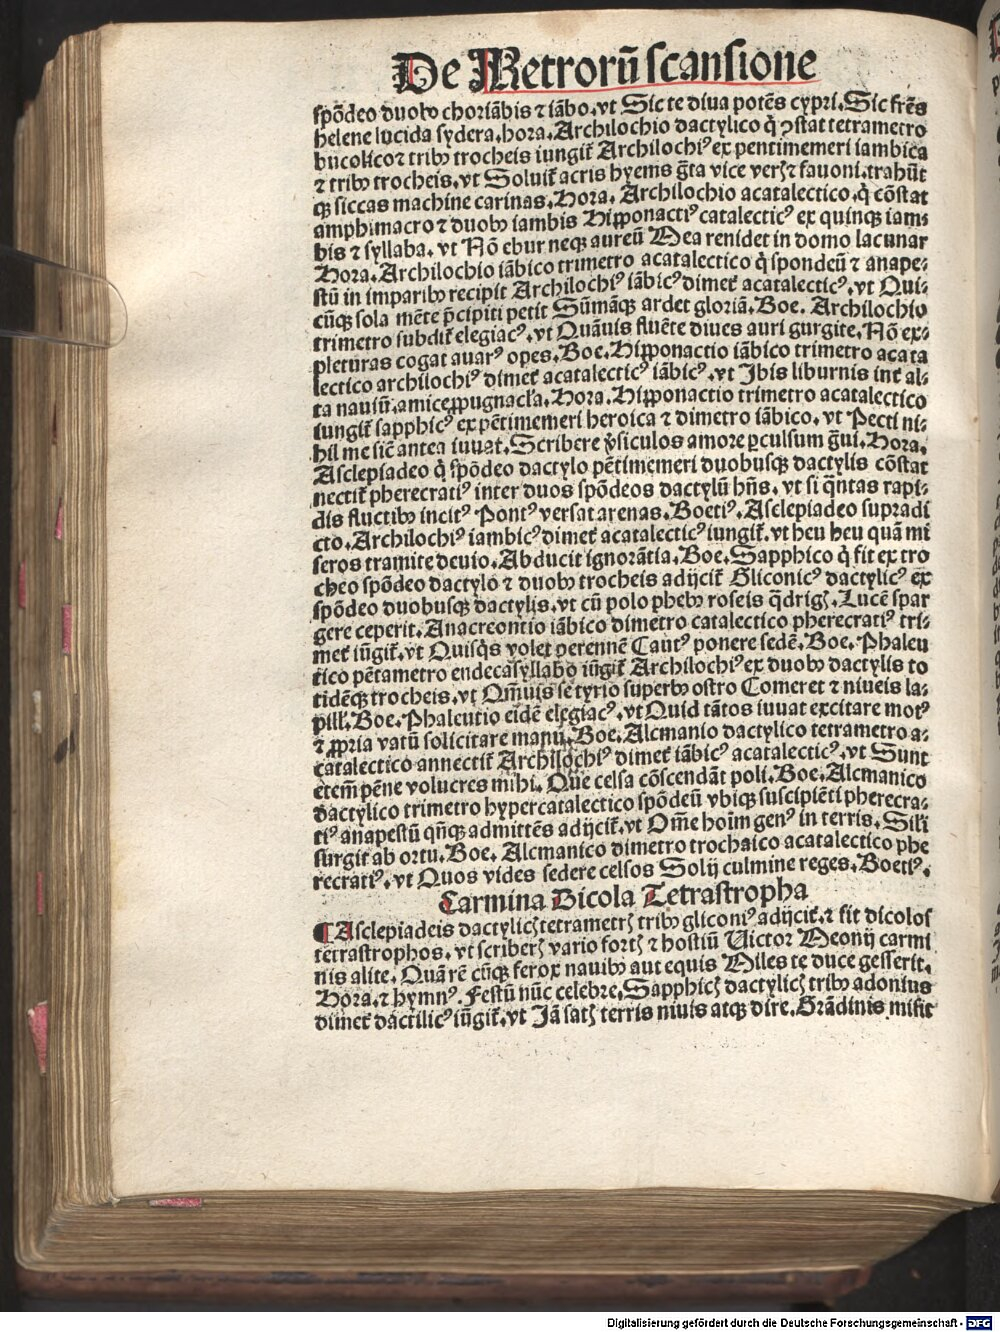 De Metrorū scansione
spōdeo duobꝰ choriābis ⁊ iābo. vt Sic te diua potēs cypri. Sic frēs
helene lucida sydera. hora. Archilochio dactylico q̇ ꝯstat tetrametro
bucolico⁊ tribꝰ trocheis iungit̄ Archilochiꝰ ex pentimemeri iambica
⁊ tribꝰ trocheis. vt Soluit̄ acris hyems g̃ta vice verꝫ ⁊ fauoni. trahūt
qꝫ siccas machine carinas. Hora. Archilochio acatalectico. q̇ cōstat
amphimacro ⁊ duobꝰ iambis Hipponactiꝰ catalecticꝰ ex quinqꝫ iam⸗
bis ⁊ syllaba. vt Nō ebur neqꝫ aureū Mea renidet in domo lacunar
Hora. Archilochio iābico trimetro acatalectico q̇ spondeū ⁊ anape⸗
stū in imparibꝰ recipit Archilochiꝰ iābicꝰ dimet̄ acatalecticꝰ. vt Qui⸗
cūqꝫ sola mēte p̄cipiti petit Sūmāqꝫ ardet gloriā. Boe. Archilochio
trimetro subdit̄ elegiacꝰ. vt Quāuis fluēte diues auri gurgite. Nō ex⸗
pleturas cogat auarꝰ opes. Boe. Hipponactio iābico trimetro acata
lectico archilochiꝰ dimet̄ acatalecticꝰ iābicꝰ. vt Ibis liburnis int̄ al⸗
ta nauiū. amice ꝓpugnacl̄a. Hora. Hipponactio trimetro acatalectico
iungit̄ sapphicꝰ ex pētimemeri heroica ⁊ dimetro iābico. vt Pecti ni⸗
hil me sic̄ antea iuuat. Scribere v̓siculos amore ꝑculsum g̃ui. Hora.
Asclepiadeo q̇ spōdeo dactylo pētimemeri duobusqꝫ dactylis cōstat
nectit̄ pherecratiꝰ inter duos spōdeos dactylū hn̄s. vt si q̄ntas rapi⸗
dis fluctibꝰ incitꝰ Pontꝰ versat arenas. Boetiꝰ. Asclepiadeo supradi
cto. Archilochiꝰ iambicꝰ dimet̄ acatalecticꝰ iungit̄. vt heu heu quā mi
seros tramite deuio. Abducit ignorātia. Boe. Sapphico q̇ fit ex tro
cheo spōdeo dactylo ⁊ duobꝰ trocheis adijcit̄ Gliconicꝰ dactylicꝰ ex
spōdeo duobusqꝫ dactylis. vt cū polo phebꝰ roseis q̄drigꝫ. Lucē spar
gere ceperit. Anacreontio iābico dimetro catalectico pherecratiꝰ tri⸗
met̄ iūgit̄. vt Quisq̇s volet perennē Cautꝰ ponere sedē. Boe. Phaleu
tico pētametro endecasyllabo iūgit̄ Archilochiꝰ ex duobꝰ dactylis to
tidēqꝫ trocheis. vt Om̄uis se tyrio superbꝰ ostro Comeret ⁊ niueis la⸗
pill'. Boe. Phaleutio eidē elegiacꝰ. vt Quid tātos iuuat excitare motꝰ
⁊ ꝓpria vatū solicitare manū. Boe. Alcmanio dactylico tetrametro a⸗
catalectico annectit̄ Archilochiꝰ dimet̄ iābicꝰ acatalecticꝰ. vt Sunt
etem̄ pēne volucres mihi. Que celsa cōscendāt poli. Boe. Alcmanico
dactylico trimetro hypercatalectico spōdeū vbiqꝫ suscipiēti pherecra⸗
tiꝰ anapestū qn̄qꝫ admittēs adijcit̄. vt Om̄e hoīm genꝰ in terris. Sili
surgit ab ortu. Boe. Alcmanico dimetro trochaico acatalectico phe
recratiꝰ. vt Quos vides sedere celsos Solij culmine reges. Boetiꝰ.
Carmina Dicola Tetrastropha
¶ Asclepiadeis dactylicꝫ tetrametrꝫ tribꝰ gliconiꝰ adijcit̄. ⁊ fit dicolos
tetrastrophos. vt scriberꝫ vario fortꝫ ⁊ hostiū Uictor Meonij carmi
nis alite. Quā rē cūqꝫ ferox nauibꝰ aut equis Miles te duce gesserit.
Hora. ⁊ hymnꝰ. Festū nūc celebre. Sapphicꝫ dactylicꝫ tribꝰ adonius
dimet̄ dactilicꝰ iūgit̄. vt Iā satꝫ terris niuis atqꝫ dire. Grādinis misit
Digitalisierung gefördert durch die Deutsche Forschungsgemeinschaft - DFG